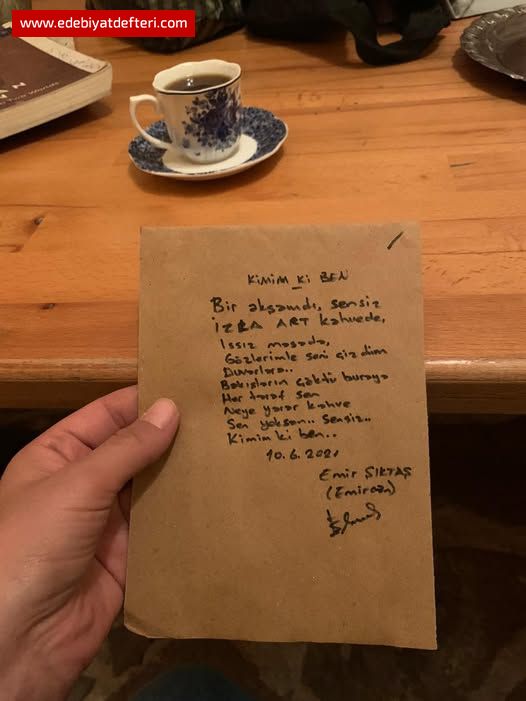 www.edebiyatdefteri.com
KİMİM Kİ BEN
Bir akşamdı, sensiz
İZRA ART kahvede,
Issız masada,
Gözlerimle seni çizdim
Duvarlara..
Bakışların çöktü buraya
Her taraf sen
Neye yarar kahve
Sen yoksan.. Sensiz..
Kimim ki ben..
10.6.2021
Emir ŞIKTAŞ
(Emircan)